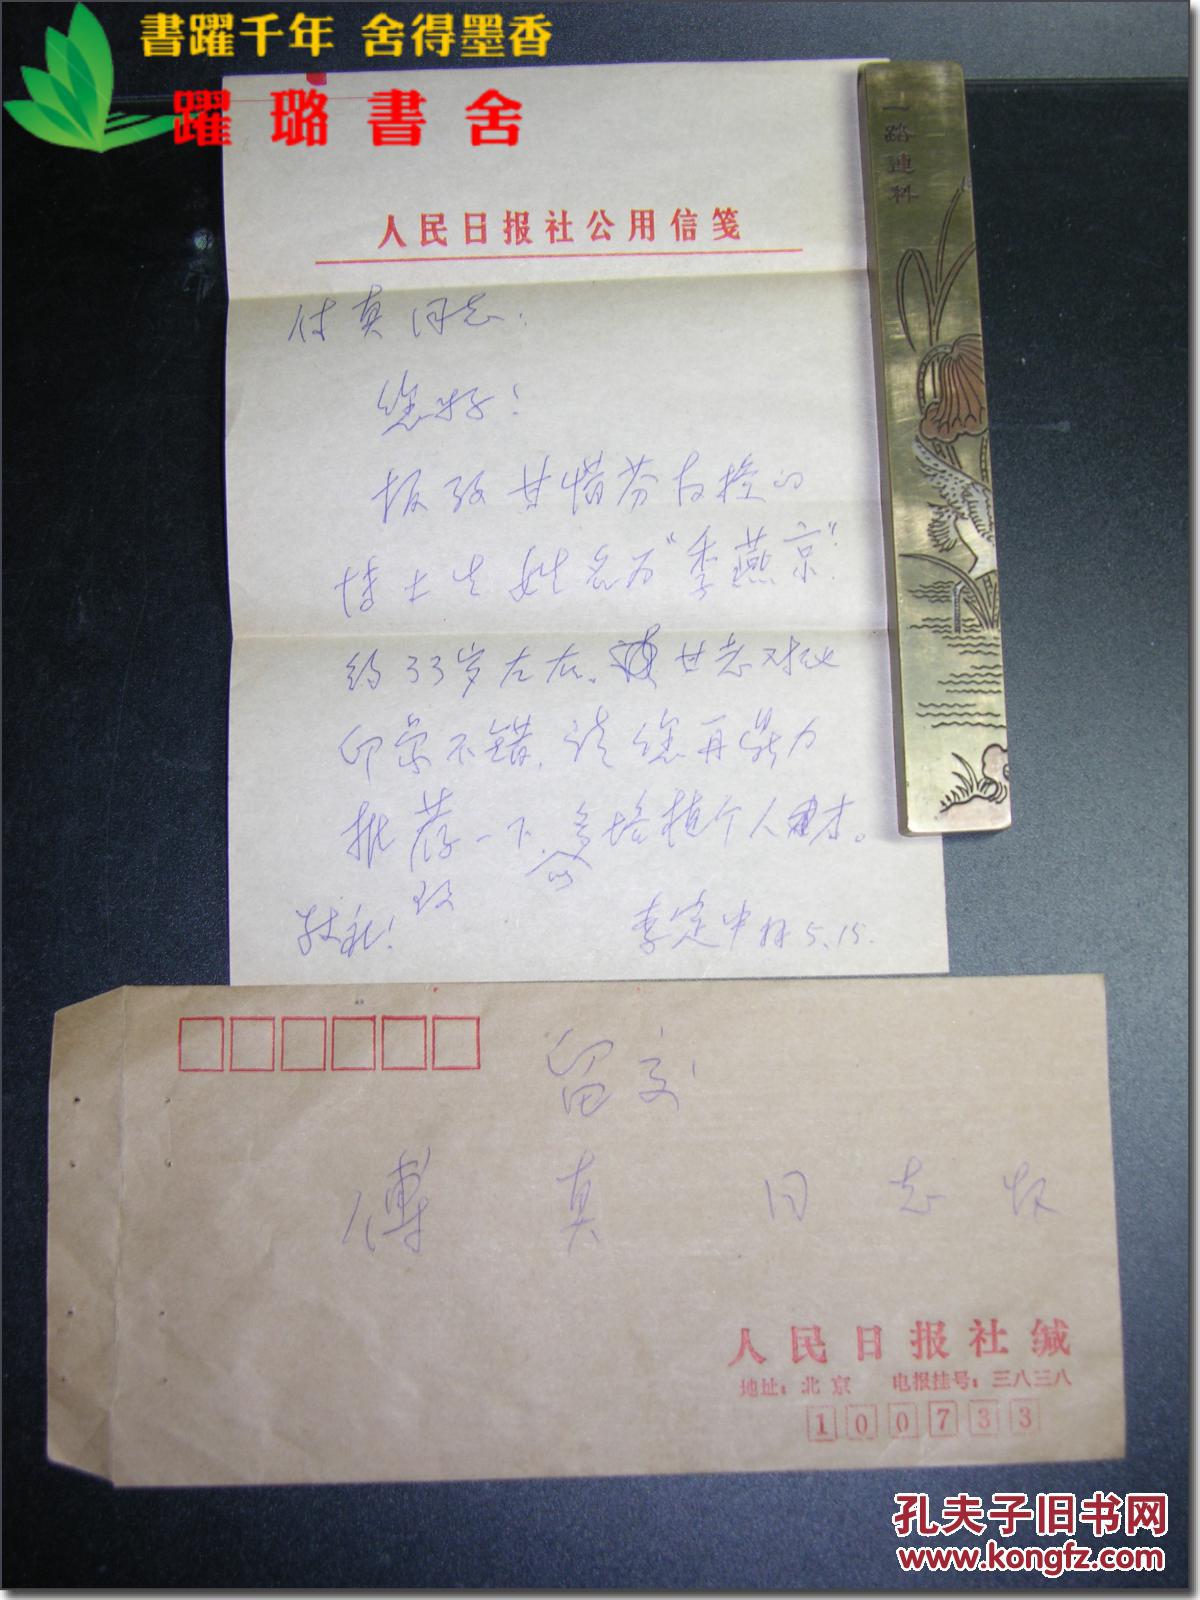 書躍千年 舍得墨香
躍璐書舍
一路連科
人民日报社公用信笺
付真同志:
您好!
报考甘惜芬右控的
博士生姓名为“季燕京”
约33岁左右。甘老对他
印象不错,请您再鼎力
推荐一下,多培植个人才。
致
敬礼!
李定中 5.15.
留交:
傅真同志收
人民日报社缄
地址:北京 电报挂号:三八三八
100733
孔夫子旧书网
www.kongfz.com